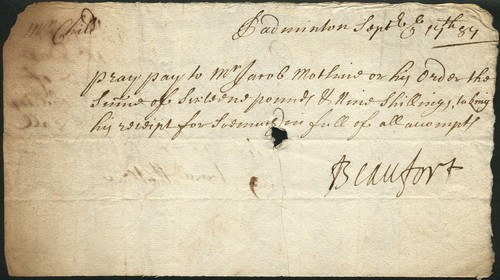 Mr Child
Badminton Septe ye 17th 87
pray pay to Mr Jacob Mothine or his Order the
Sume of Sixteene pounds & Nine Shillings, taking
his receipt for Soe much in full of all accompts
Beaufort